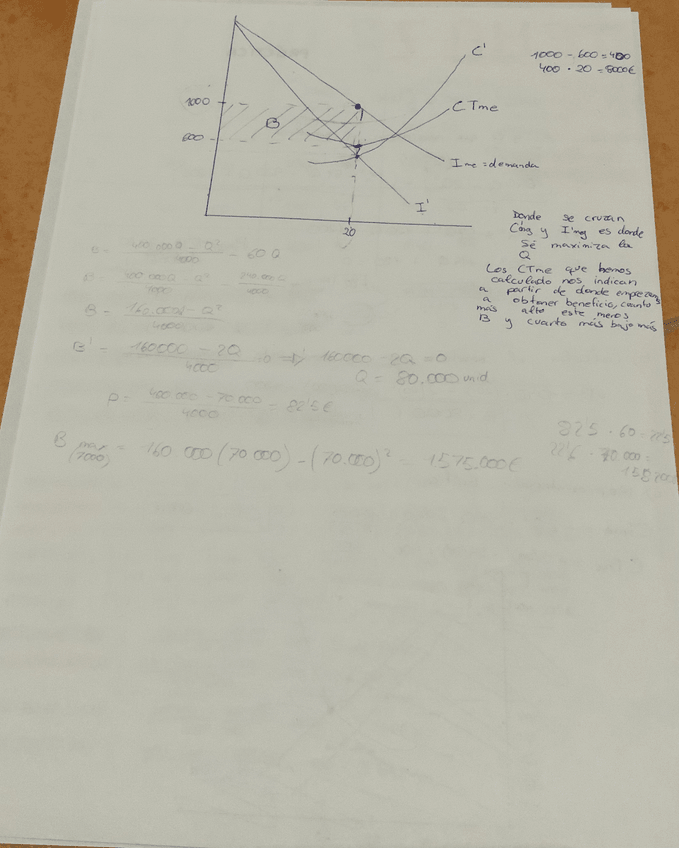 C'
1000 - 600 = 400
400 · 20 = 8000€
1000
CTme
B
600
Ime = demanda
I'
20
Donde se cruzan
C'mg y I'mg es donde
se maximiza la
Q
Los CTme que hemos
calculado nos indican
a partir de donde empezamos
a obtener beneficio, cuanto
más alto este menos
B y cuanto más bajo más
B = 400.000Q - Q² / 4000 - 60Q
B = 400.000Q - Q² / 4000 - 240.000Q / 4000
B = 160.000Q - Q² / 4000
B' = 160000 - 2Q / 4000 = 0 ⇒ 160000 - 2Q = 0
Q = 80.000 unid.
P = 400.000 - 70.000 / 4000 = 82'5€
82'5 - 60 = 22'5
22'5 · 70.000 =
B max (7000) = 160 000 (70.000) - (70.000)² = 1575.000€